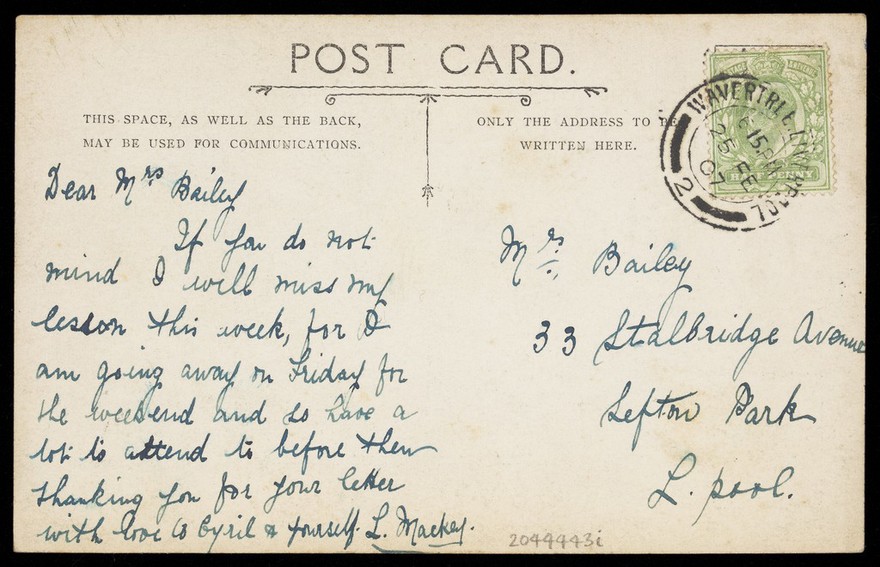 POST CARD.
THIS SPACE, AS WELL AS THE BACK,
MAY BE USED FOR COMMUNICATIONS.
ONLY THE ADDRESS TO BE
WRITTEN HERE.
WAVERTREE LIVERPOOL
6 15 PM
25 FE
07
2
HALF PENNY
Dear Mrs Bailey
If you do not
mind I will miss my
lesson this week, for I
am going away on Friday for
the weekend and so have a
lot to attend to before then
thanking you for your letter
with love to Cyril & yourself. L. Mackey.
Mrs. Bailey
33 Stalbridge Avenue
Sefton Park
L. pool.
2044443i